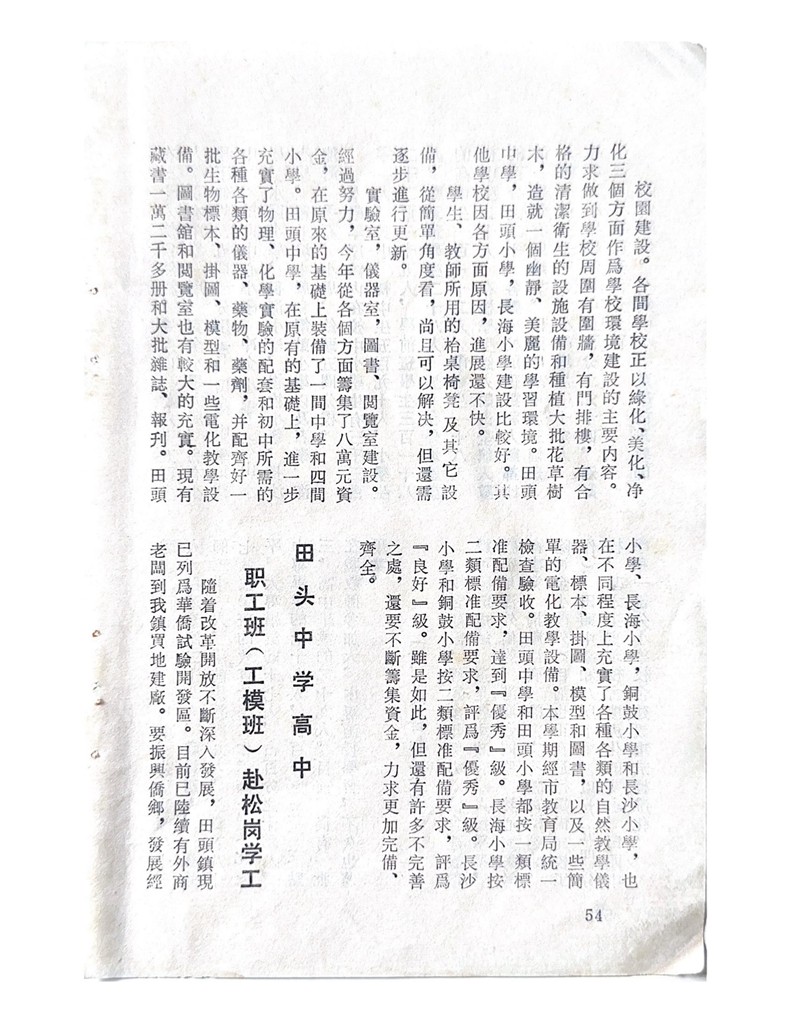 校園建設。各間學校正以綠化、美化、净
化三個方面作爲學校環境建設的主要内容。
力求做到學校周圍有圍牆，有門排樓，有合
格的清潔衛生的設施設備和種植大批花草樹
木，造就一個幽靜、美麗的學習環境。田頭
中學，田頭小學，長海小學建設比較好。其
他學校因各方面原因，進展還不快。
學生、教師所用的枱桌椅凳及其它設
備，從簡單角度看，尚且可以解决，但還需
逐步進行更新。
實驗室，儀器室，圖書、閲覽室建設。
經過努力，今年從各個方面籌集了八萬元資
金，在原來的基礎上裝備了一間中學和四間
小學。田頭中學，在原有的基礎上，進一步
充實了物理、化學實驗的配套和初中所需的
各種各類的儀器、藥物、藥劑，并配齊好一
批生物標本、掛圖、模型和一些電化教學設
備。圖書舘和閲覽室也有較大的充實。現有
藏書一萬二千多册和大批雜誌、報刊。田頭
小學、長海小學，銅鼓小學和長沙小學，也
在不同程度上充實了各種各類的自然教學儀
器、標本、掛圖、模型和圖書，以及一些簡
單的電化教學設備。本學期經市教育局統一
檢查驗收。田頭中學和田頭小學都按一類標
准配備要求，達到『優秀』級。長海小學按
二類標准配備要求，評爲『優秀』級。長沙
小學和銅鼓小學按二類標准配備要求，評爲
『良好』級。雖是如此，但還有許多不完善
之處，還要不斷籌集資金，力求更加完備、
齊全。
田头中学高中
职工班（工模班）赴松岗学工
隨着改革開放不斷深入發展，田頭鎮現
已列爲華僑試驗開發區。目前已陸續有外商
老闆到我鎮買地建廠。要振興僑鄉，發展經
54